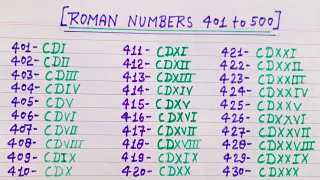 [ROMAN NUMBERS 401 to 500]
401- CDI 411- CDXI 421- CDXXI
402- CDII 412- CDXII 422- CDXXII
403- CDIII 413- CDXIII 423- CDXXIII
404- CDIV 414- CDXIV 424- CDXXIV
405- CDV 415- CDXV 425- CDXXV
406- CDVI 416- CDXVI 426- CDXXVI
407- CDVII 417- CDXVII 427- CDXXVII
408- CDVIII 418- CDXVIII 428- CDXXVIII
409- CDIX 419- CDXIX 429- CDXXIX
410- CDX 420- CDXX 430- CDXXX